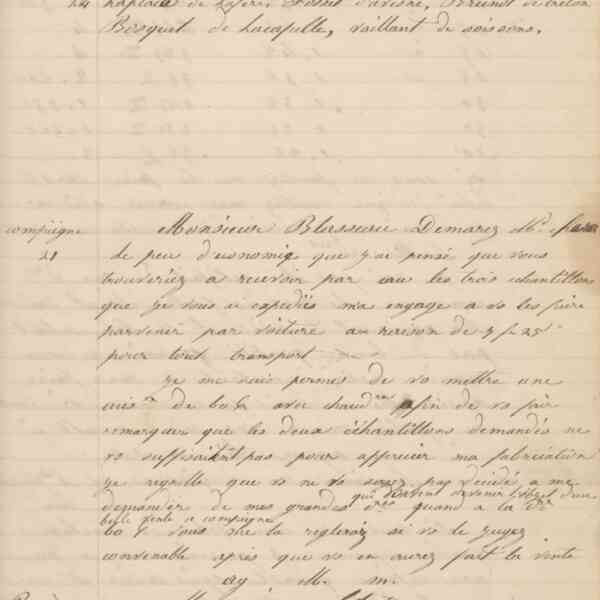 24 de Lafere, d'avesne,
Bosquet de Lacapelle, vaillant de soissons.
compiègne Monsieur Demarez Md
21 de peu d'economie que j'ai pensé que vous
trouveriez a recevoir par eau les trois échantillons
que je vous ai expédiés ma engagé a vs les faire
parvenir par voiture au raison de 7 f 25
pour tout transport
je me suis permis de vs mettre une
de avec afin de vs faire
remarquer que les deux échantillons demandés ne
vs suffisaient pas pour apprécier ma fabrication
je regrette que vs ne vs soyez pas décidé a me
demander de mes grandes quand a la
qui devront devenir l'objet d'une
belle vente a compiegne
60 f vous me la reglerez si vs le jugez
convenable après que vs en aurez fait la vente
ay M. m.